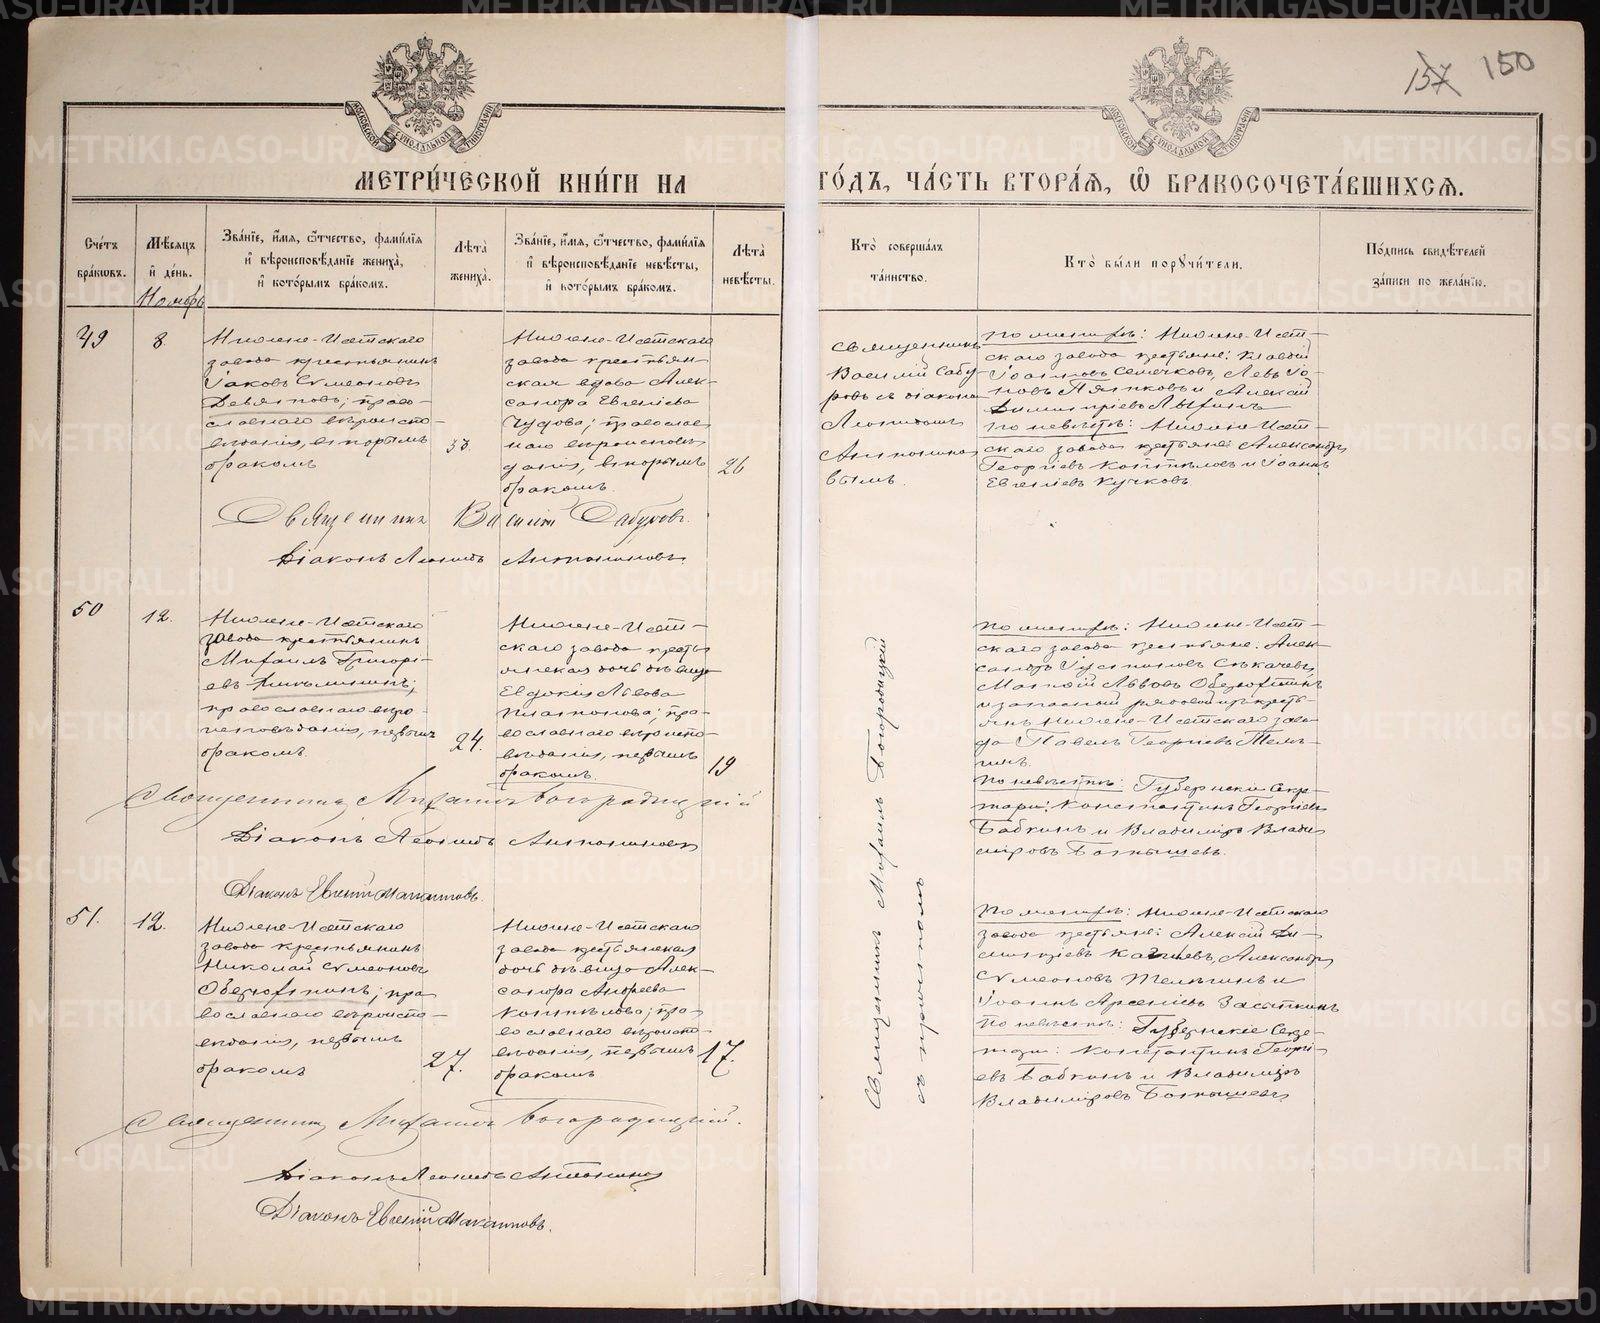 157 150
МОСКОВСКОЙ СѴНОДАЛЬНОЙ ТИПОГРАФІИ
МОСКОВСКОЙ СѴНОДАЛЬНОЙ ТИПОГРАФІИ
МЕТРИ́ЧЕСКОЙ КНИ́ГИ НА ГО́ДЪ, ЧА́СТЬ ВТОРА́Я, Ѿ БРАКОСОЧЕТА́ВШИХСЯ.
Сче́тъ бра́кѡвъ.
Мѣ́сяцъ и҆ де́нь.
Ноябрь
Зва́нїе, и҆́мя, ѻ҆́тчество, фами́лїя и҆ вѣроисповѣ́данїе жениха̀, и҆ кото́рымъ бра́комъ.
Лѣта̀ жениха̀.
Зва́нїе, и҆́мя, ѻ҆́тчество, фами́лїя и҆ вѣроисповѣ́данїе невѣ́сты, и҆ кото́рымъ бра́комъ.
Лѣта̀ невѣ́сты.
Кто̀ соверша́лъ та́инство.
Кто̀ бы́ли порꙋчи́тели.
По́дпись свидѣ́телей за́писи по жела́нїю.
49
8.
Нижне-Исетскаго
завода крестьянинъ
Іаковъ Сѵмеоновъ
Девятовъ; право-
славнаго вѣроиспо-
вѣданія, вторымъ
бракомъ
33.
Нижне-Исетскаго
завода крестьян-
ская вдова Алек-
сандра Евгеніева
Чудова; православ-
наго вѣроисповѣ-
данія, вторымъ
бракомъ.
26
Священникъ
Василій Сабу-
ровъ съ діакономъ
Леонидомъ
Антонино-
вымъ.
По женихѣ: Нижне-Исет-
скаго завода крестьяне: Клавдій
Іоанновъ Семячковъ, Левъ Іо-
новъ Пятковъ и Алексій
Димитріевъ Лыжинъ
По невѣстѣ: Нижне-Исет-
скаго завода крестьяне: Александръ
Георгіевъ Коптѣловъ и Іоаннъ
Евгеніевъ Кучковъ.
Священникъ Василій Сабуровъ.
Діаконъ Леонидъ Антониновъ.
50
12.
Нижне-Исетскаго
завода крестьянинъ
Михаилъ Григорі-
евъ
православнаго вѣро-
исповѣданія, первымъ
бракомъ.
24.
Нижне-Исет-
скаго завода кресть-
янская дочь дѣвица
Евдокія Львова
Платонова; пра-
вославнаго вѣроиспо-
вѣданія, первымъ
бракомъ.
19
Священникъ Михаилъ Богородицкій
съ причтомъ
По женихѣ: Нижне-Исет-
скаго завода крестьяне: Алек-
сандръ Іустиновъ Секачевъ,
Матѳій Львовъ Обезюхтинъ
и запасный рядовой изъ кресть-
янъ Нижне-Исетскаго заво-
да Павелъ Георгіевъ Телѣ-
гинъ.
По невѣстѣ: Губернскіе Секре-
тари: Константинъ Георгіевъ
Бабкинъ и Владиміръ Влади-
міровъ Батышевъ.
Священникъ Михаилъ Богородицкій
Діаконъ Леонидъ Антониновъ
Діаконъ Евгеній
51.
12.
Нижне-Исетскаго
завода крестьянинъ
Николай Сѵмеоновъ
Обезюхтинъ; пра-
вославнаго вѣроиспо-
вѣданія, первымъ
бракомъ
27.
Нижне-Исетскаго
завода крестьянская
дочь дѣвица Алек-
сандра Андреева
Коптѣлова; пра-
вославнаго вѣроиспо-
вѣданія, первымъ
бракомъ
17.
По женихѣ: Нижне-Исетскаго
завода крестьяне: Алексій Ди-
митріевъ Александръ
Сѵмеоновъ Телѣгинъ и
Іоаннъ Арсеніевъ Засыпкинъ
По невѣстѣ: Губернскіе Секре-
тари: Константинъ Георгі-
евъ Бабкинъ и Владиміръ
Владиміровъ Батышевъ
Священникъ Михаилъ Богородицкій.
Діаконъ Леонидъ Антониновъ
Діаконъ Евгеній
METRIKI.GASO-URAL.RU